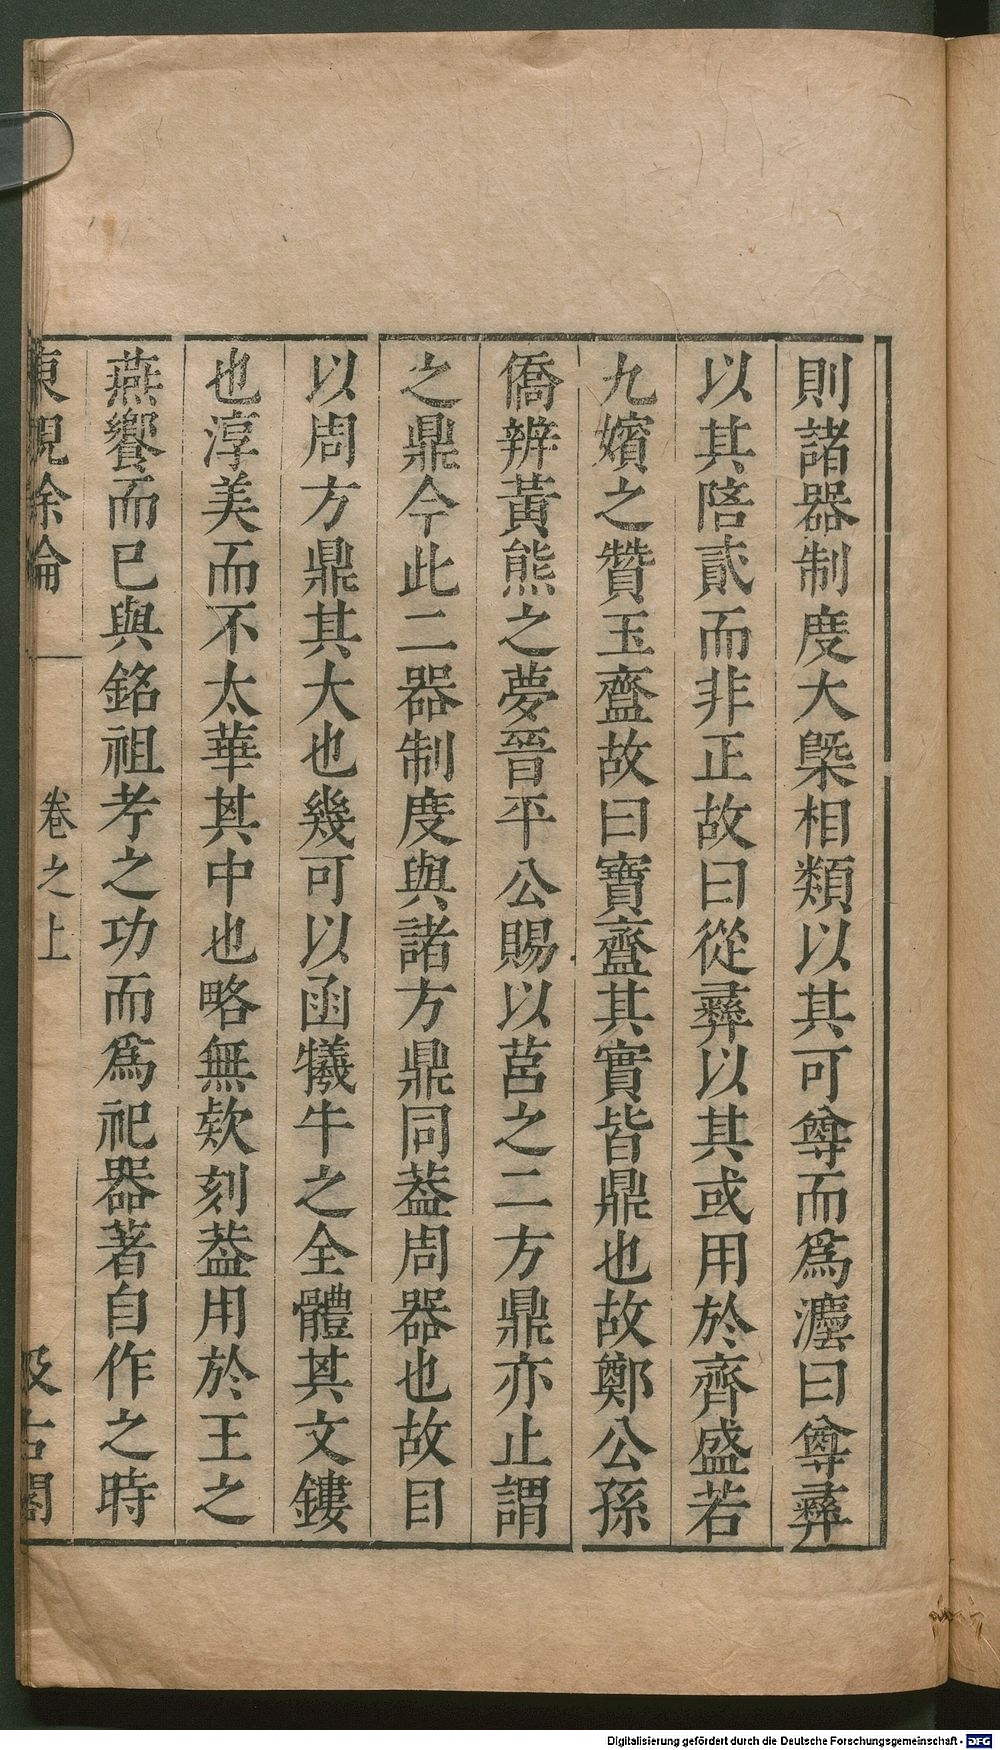 則諸器制度大槩相類以其可尊而爲灋曰尊彛
以其陪貳而非正故曰從彛以其或用於齊盛若
九嬪之贊玉齍故曰寶齍其實皆鼎也故鄭公孫
僑辨黃熊之夢晉平公賜以莒之二方鼎亦止謂
之鼎今此二器制度與諸方鼎同葢周器也故目
以周方鼎其大也幾可以函犧牛之全體其文鏤
也淳美而不太華其中也略無欵刻葢用於王之
燕饗而已與銘祖考之功而爲祀器著自作之時
東觀餘論 卷之上 汲古閣
Digitalisierung gefördert durch die Deutsche Forschungsgemeinschaft - DFG